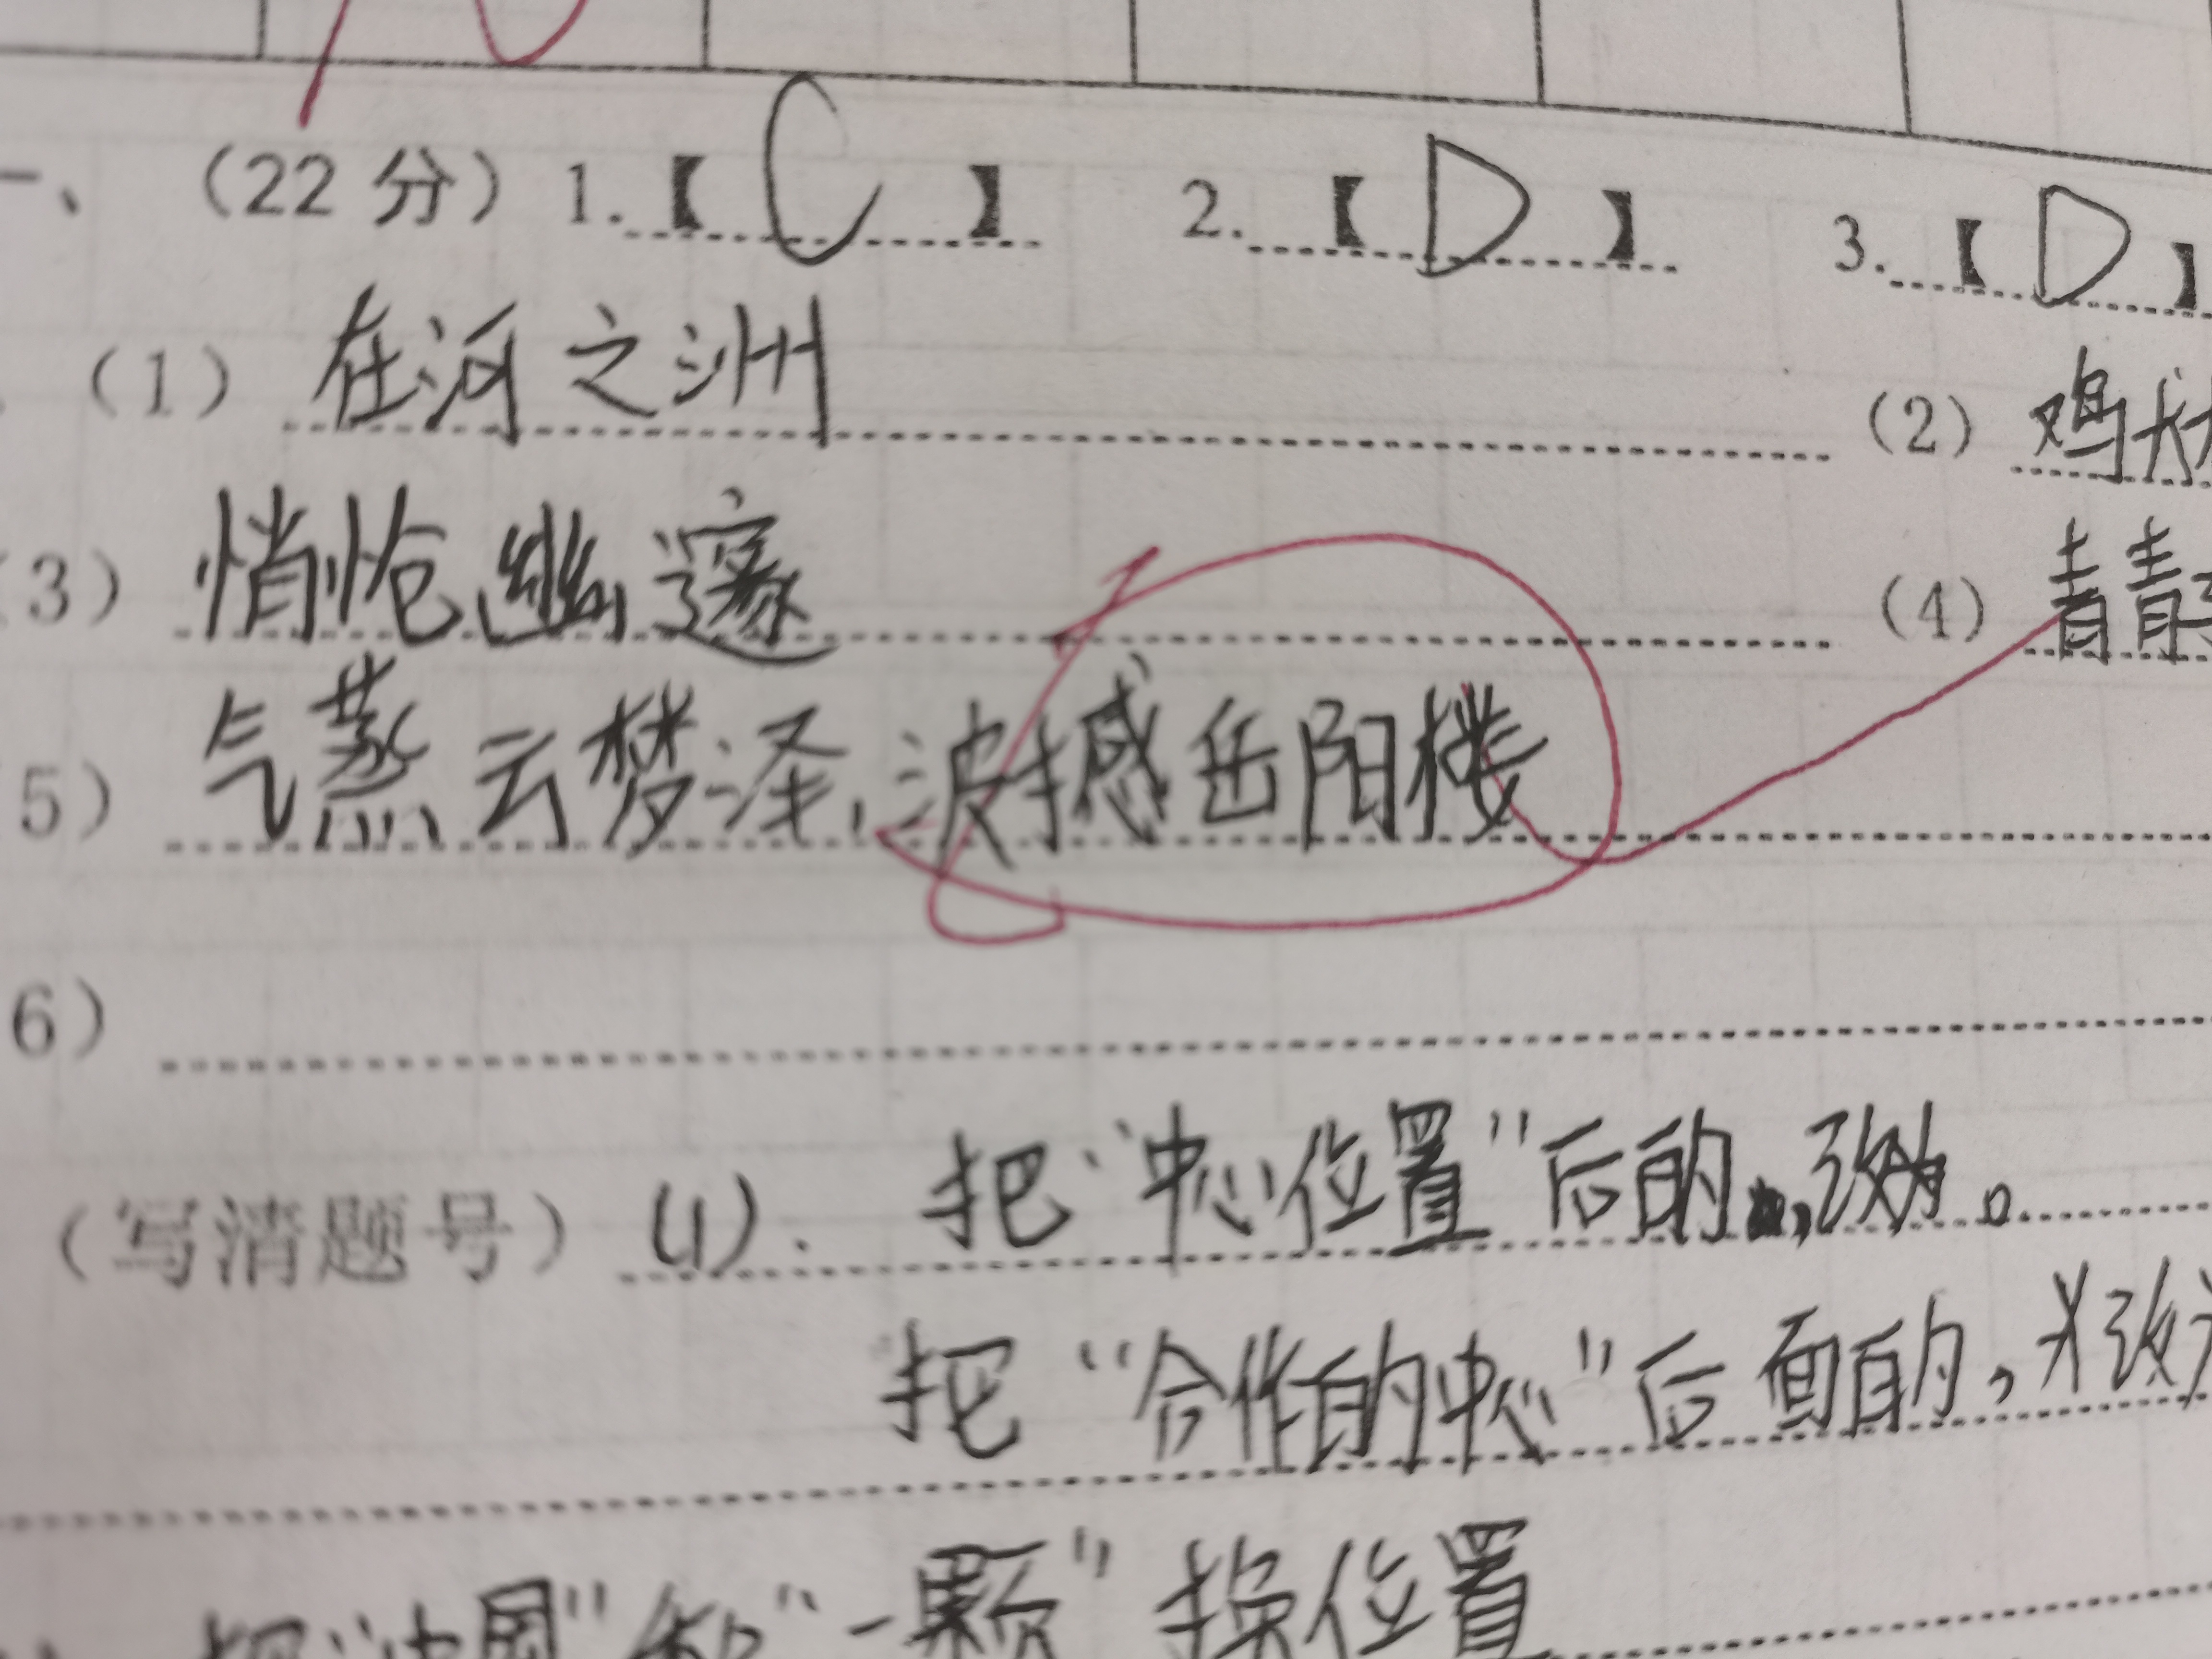 一、（22 分）1.【 C 】 2.【 D 】 3.【 D 】
（1）在河之洲 （2）鸡犬
3）悄怆幽邃 （4）青青
5）气蒸云梦泽,波撼岳阳楼
6）
（写清题号）(1). 把“中心位置”后的,改为。
把“合作的中心”后面的,
"和"一颗"换位置